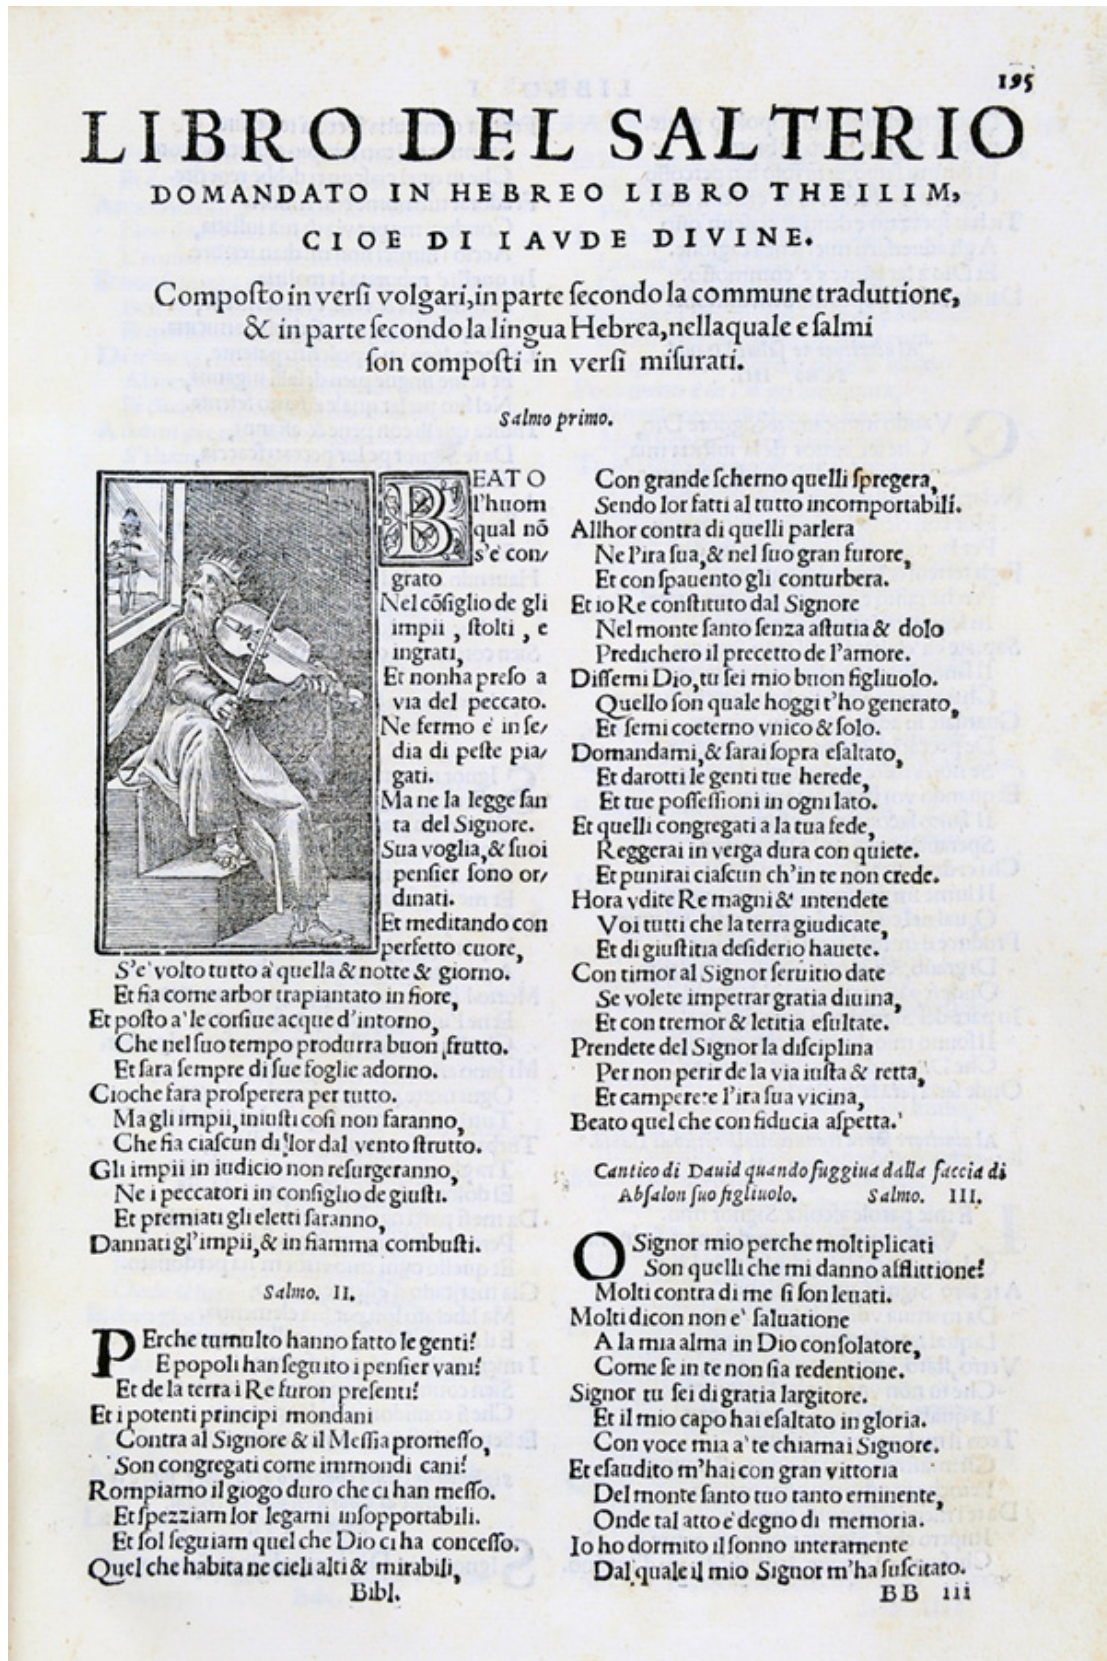 195
LIBRO DEL SALTERIO
DOMANDATO IN HEBREO LIBRO THEILIM,
CIOE DI IAVDE DIVINE.
Compoſto in verſi volgari, in parte ſecondo la commune traduttione,
& in parte ſecondo la lingua Hebrea, nellaquale e ſalmi
ſon compoſti in verſi miſurati.
Salmo primo.
BEATO
l'huom
qual nõ
s'e' con/
grato
Nel cõſiglio de gli
impii, ſtolti, e
ingrati,
Et non ha preſo a
via del peccato.
Ne fermo e' in ſe/
dia di peſte pia/
gati.
Ma ne la legge ſan
ta del Signore.
Sua voglia, & ſuoi
penſier ſono or/
dinati.
Et meditando con
perfetto cuore,
S'e' volto tutto a' quella & notte & giorno.
Et fia come arbor trapiantato in fiore,
Et poſto a' le corſiue acque d'intorno,
Che nel ſuo tempo produrra buon frutto.
Et ſara ſempre di ſue foglie adorno.
Cioche fara proſperera per tutto.
Ma gli impii, iniuſti coſi non faranno,
Che fia ciaſcun di lor dal vento ſtrutto.
Gli impii in iudicio non reſurgeranno,
Ne i peccatori in conſiglio de giuſti.
Et premiati gli eletti ſaranno,
Dannati gl'impii, & in fiamma combuſti.
Salmo. II.
PErche tumulto hanno fatto le genti?
E popoli han ſeguito i penſier vani?
Et de la terra i Re furon preſenti?
Et i potenti principi mondani
Contra al Signore & il Meſſia promeſſo,
Son congregati come immondi cani?
Rompiamo il giogo duro che ci han meſſo.
Et ſpezziam lor legami inſopportabili.
Et ſol ſeguiam quel che Dio ci ha conceſſo.
Quel che habita ne cieli alti & mirabili,
Bibl.
Con grande ſcherno quelli ſpregera,
Sendo lor fatti al tutto incomportabili.
Allhor contra di quelli parlera
Ne l'ira ſua, & nel ſuo gran furore,
Et con ſpauento gli conturbera.
Et io Re conſtituto dal Signore
Nel monte ſanto ſenza aſtutia & dolo
Predichero il precetto de l'amore.
Diſſemi Dio, tu ſei mio buon figliuolo.
Quello ſon quale hoggi t'ho generato,
Et ſemi coeterno vnico & ſolo.
Domandami, & ſarai ſopra eſaltato,
Et darotti le genti tue herede,
Et tue poſſeſſioni in ogni lato.
Et quelli congregati a la tua ſede,
Reggerai in verga dura con quiete.
Et punirai ciaſcun ch'in te non crede.
Hora vdite Re magni & intendete
Voi tutti che la terra giudicate,
Et di giuſtitia deſiderio hauete.
Con timor al Signor ſeruitio date
Se volete impetrar gratia diuina,
Et con tremor & letitia eſultate.
Prendete del Signor la diſciplina
Per non perir de la via iuſta & retta,
Et camperete l'ira ſua vicina,
Beato quel che con fiducia aſpetta.
Cantico di Dauid quando fuggiua dalla faccia di
Abſalon ſuo figliuolo. Salmo. III.
O Signor mio perche moltiplicati
Son quelli che mi danno afflittione?
Molti contra di me ſi ſon leuati.
Molti dicon non e' ſaluatione
A la mia alma in Dio conſolatore,
Come ſe in te non ſia redentione.
Signor tu ſei di gratia largitore.
Et il mio capo hai eſaltato in gloria.
Con voce mia a' te chiamai Signore.
Et eſaudito m'hai con gran vittoria
Del monte ſanto tuo tanto eminente,
Onde tal atto e' degno di memoria.
Io ho dormito il ſonno interamente
Dal quale il mio Signor m'ha ſuſcitato.
BB iii